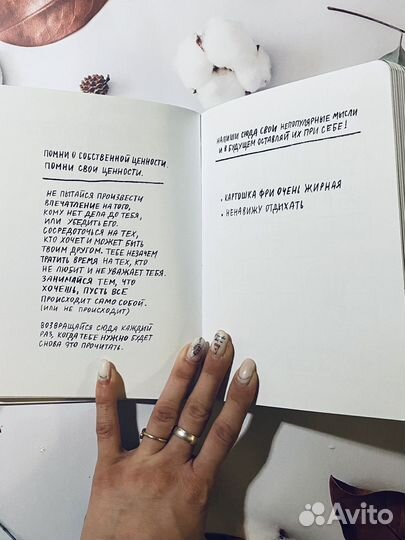 ПОМНИ О СОБСТВЕННОЙ ЦЕННОСТИ.
ПОМНИ СВОИ ЦЕННОСТИ.
НЕ ПЫТАЙСЯ ПРОИЗВЕСТИ
ВПЕЧАТЛЕНИЕ НА ТОГО,
КОМУ НЕТ ДЕЛА ДО ТЕБЯ,
ИЛИ УБЕДИТЬ ЕГО.
СОСРЕДОТОЧЬСЯ НА ТЕХ,
КТО ХОЧЕТ И МОЖЕТ БЫТЬ
ТВОИМ ДРУГОМ. ТЕБЕ НЕЗАЧЕМ
ТРАТИТЬ ВРЕМЯ НА ТЕХ, КТО
НЕ ЛЮБИТ И НЕ УВАЖАЕТ ТЕБЯ.
ЗАНИМАЙСЯ ТЕМ, ЧТО
ХОЧЕШЬ, ПУСТЬ ВСЁ
ПРОИСХОДИТ САМО СОБОЙ.
(ИЛИ НЕ ПРОИСХОДИТ)
ВОЗВРАЩАЙСЯ СЮДА КАЖДЫЙ
РАЗ, КОГДА ТЕБЕ НУЖНО БУДЕТ
СНОВА ЭТО ПРОЧИТАТЬ.
НАПИШИ СЮДА СВОИ НЕПОПУЛЯРНЫЕ МЫСЛИ
И В БУДУЩЕМ ОСТАВЛЯЙ ИХ ПРИ СЕБЕ!
• КАРТОШКА ФРИ ОЧЕНЬ ЖИРНАЯ
• НЕНАВИЖУ ОТДЫХАТЬ
Avito